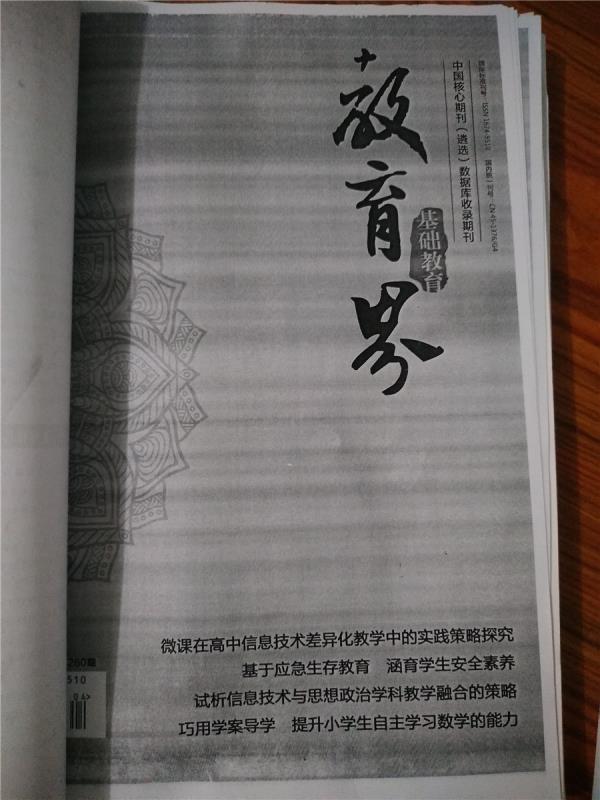 教育界
基础教育
中国核心期刊（遴选）数据库收录期刊
国际标准刊号：ISSN 1674-9510
微课在高中信息技术差异化教学中的实践策略探究
基于应急生存教育 涵育学生安全素养
试析信息技术与思想政治学科教学融合的策略
巧用学案导学 提升小学生自主学习数学的能力
260期
510